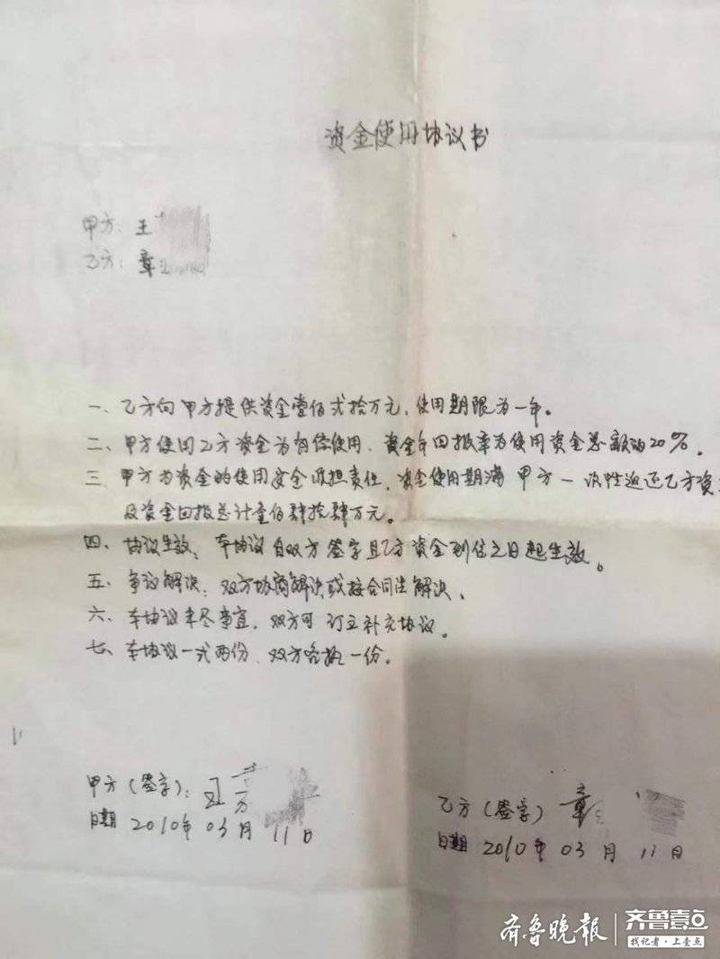 资金使用协议书
甲方：王
乙方：章
一、乙方向甲方提供资金壹佰弍拾万元，使用期限为一年。
二、甲方使用乙方资金为有偿使用，资金年回报率为使用资金总额的20%。
三、甲方为资金的使用安全承担责任，资金使用期满甲方一次性返还乙方资
及资金回报总计壹佰肆拾肆万元。
四、协议生效：本协议自双方签字且乙方资金到位之日起生效。
五、争议解决：双方协商解决或按合同法解决、
六、本协议未尽事宜，双方可订立补充协议。
七、本协议一式两份、双方各执一份。
甲方（签字）：王
日期 2010年03月11日
乙方（签字）章
日期 2010年03月11日
齐鲁晚报
齐鲁壹点
找记者·上壹点